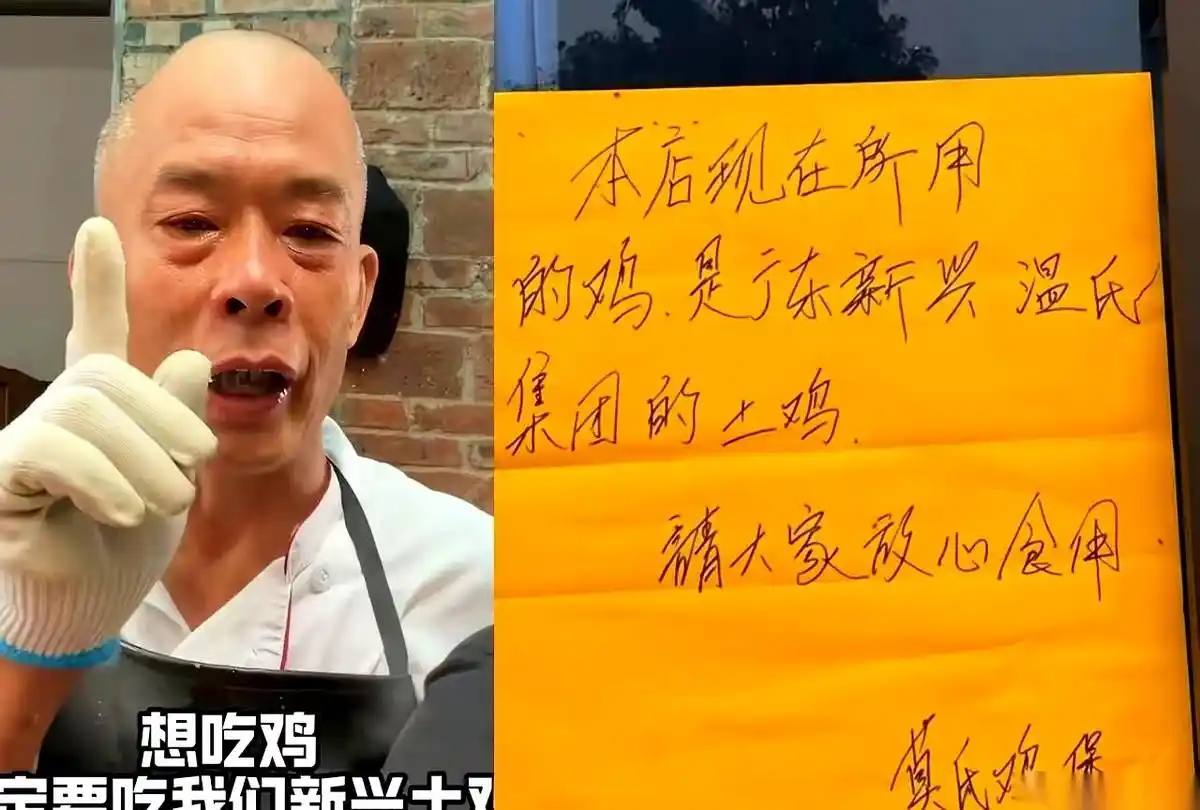 想吃鸡
定要吃我们新兴土鸡
本店现在所用
的鸡.是广东新兴温氏
集团的土鸡.
請大家放心食用.
莫氏鸡煲